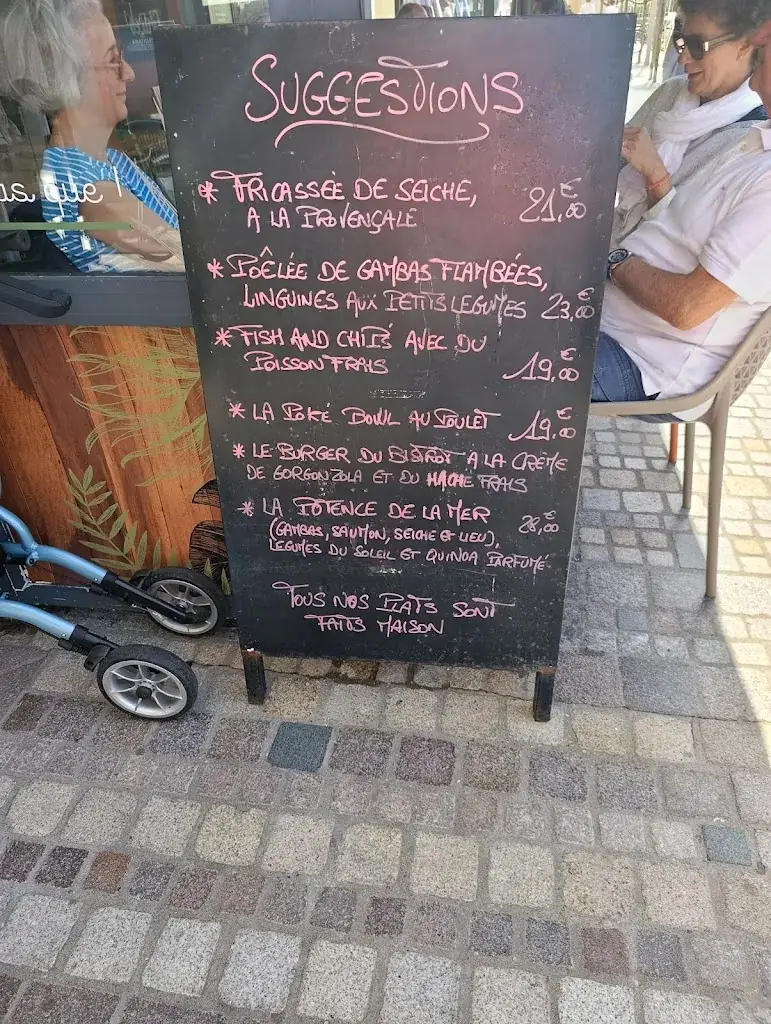 SUGGESTIONS
* FRICASSÉE DE SEICHE,
A LA PROVENÇALE 21,00 €
* POÊLÉE DE GAMBAS FLAMBÉES,
LINGUINES AUX PETITS LEGUMES 23,00 €
* FISH AND CHIPS AVEC DU
POISSON FRAIS 19,00 €
* LA POKÉ BOWL AU POULET 19,00 €
* LE BURGER DU BISTROT A LA CRÈME
DE GORGONZOLA ET DU HACHÉ FRAIS
* LA POTENCE DE LA MER 28,00 €
(GAMBAS, SAUMON, SEICHE ET LIEU),
LEGUMES DU SOLEIL ET QUINOA PARFUMÉ
TOUS NOS PLATS SONT
FAITS MAISON